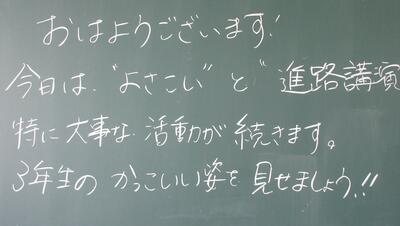 おはようございます!
今日は、"よさこい"と"進路講演
特に大事な活動が続きます。
3年生のかっこいい姿を見せましょう!!